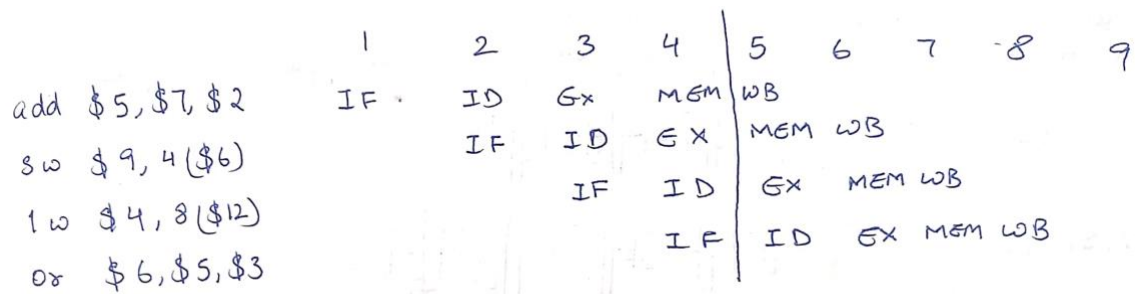 1 2 3 4 5 6 7 8 9
add $5, $7, $2 IF ID EX MEM WB
sw $9, 4($6) IF ID EX MEM WB
lw $4, 8($12) IF ID EX MEM WB
or $6, $5, $3 IF ID EX MEM WB